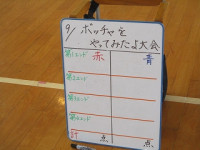 9/ ボッチャを
やってみたよ大会
赤 青
第1エンド
第2エンド
第3エンド
第4エンド
計 点 点